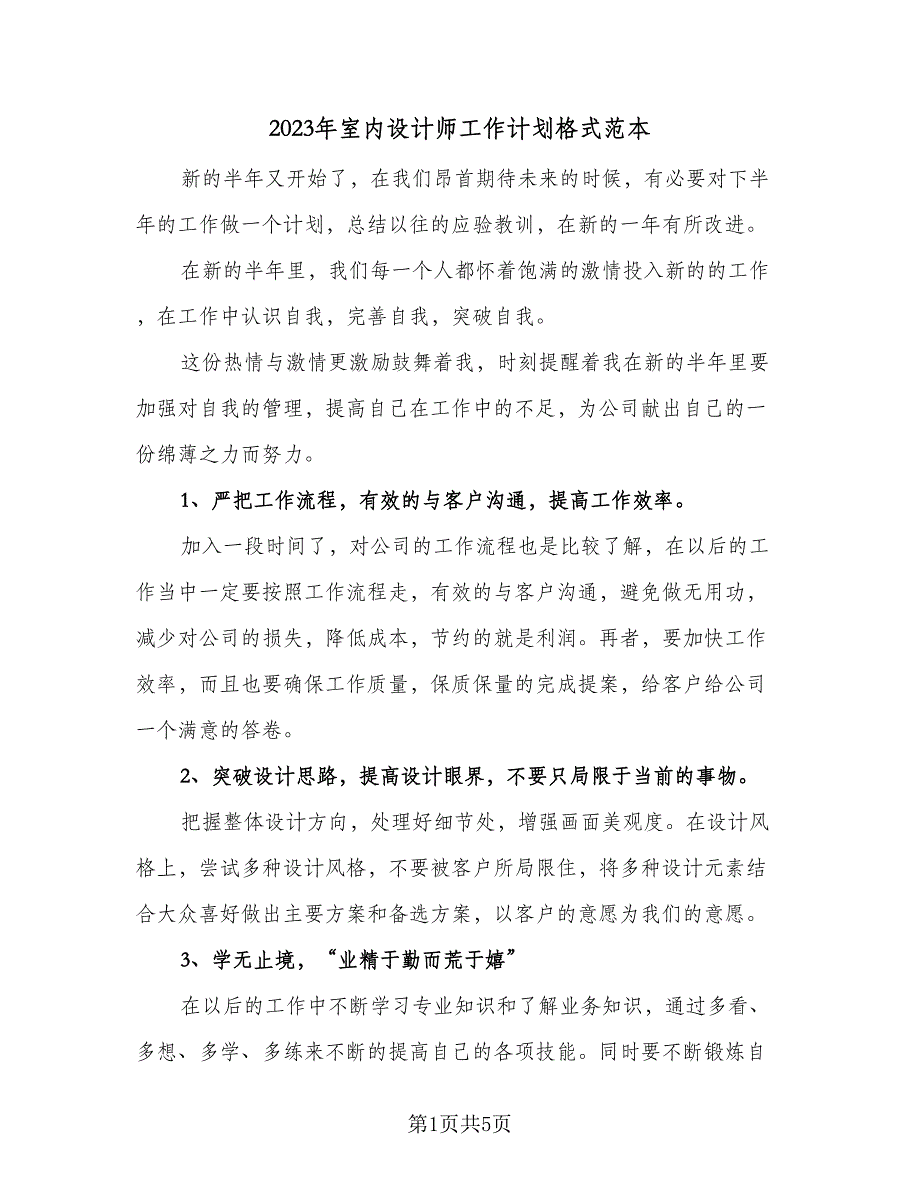 2023年室内设计师工作计划格式范本
新的半年又开始了，在我们昂首期待未来的时候，有必要对下半
年的工作做一个计划，总结以往的应验教训，在新的一年有所改进。
在新的半年里，我们每一个人都怀着饱满的激情投入新的的工作
，在工作中认识自我，完善自我，突破自我。
这份热情与激情更激励鼓舞着我，时刻提醒着我在新的半年里要
加强对自我的管理，提高自己在工作中的不足，为公司献出自己的一
份绵薄之力而努力。
1、严把工作流程，有效的与客户沟通，提高工作效率。
加入一段时间了，对公司的工作流程也是比较了解，在以后的工
作当中一定要按照工作流程走，有效的与客户沟通，避免做无用功，
减少对公司的损失，降低成本，节约的就是利润。再者，要加快工作
效率，而且也要确保工作质量，保质保量的完成提案，给客户给公司
一个满意的答卷。
2、突破设计思路，提高设计眼界，不要只局限于当前的事物。
把握整体设计方向，处理好细节处，增强画面美观度。在设计风
格上，尝试多种设计风格，不要被客户所局限住，将多种设计元素结
合大众喜好做出主要方案和备选方案，以客户的意愿为我们的意愿。
3、学无止境，“业精于勤而荒于嬉”
在以后的工作中不断学习专业知识和了解业务知识，通过多看、
多想、多学、多练来不断的提高自己的各项技能。同时要不断锻炼自
第1页共5页